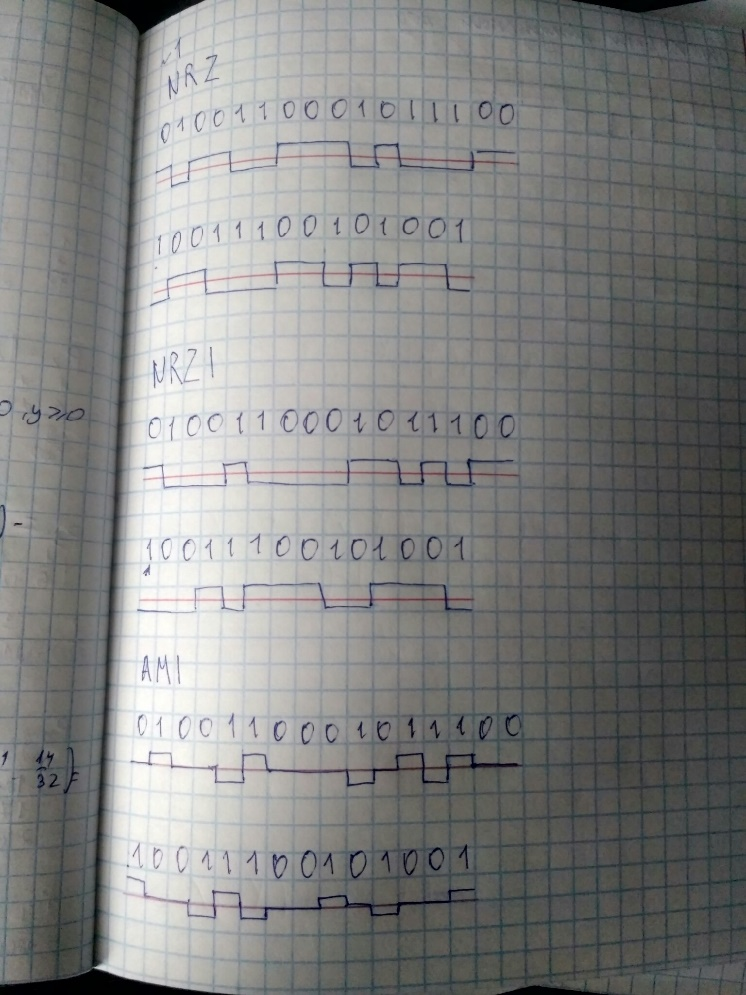 √1
NRZ
0100110001011100
10011100101001
NRZI
0100110001011100
10011100101001
0, y≥0
) -
AMI
0100110001011100
14
32
10011100101001